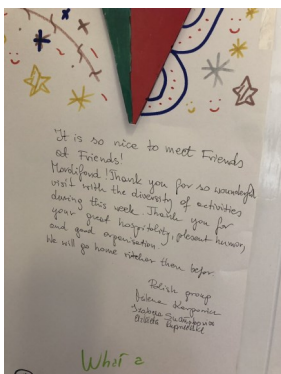 It is so nice to meet Friends
of Friends!
Thank you for so wonderful
visit with the diversity of activities
during this week. Thank you for
your great hospitality, plesent humor,
and good organisation
We will go home richer then befor
Polish group
What a